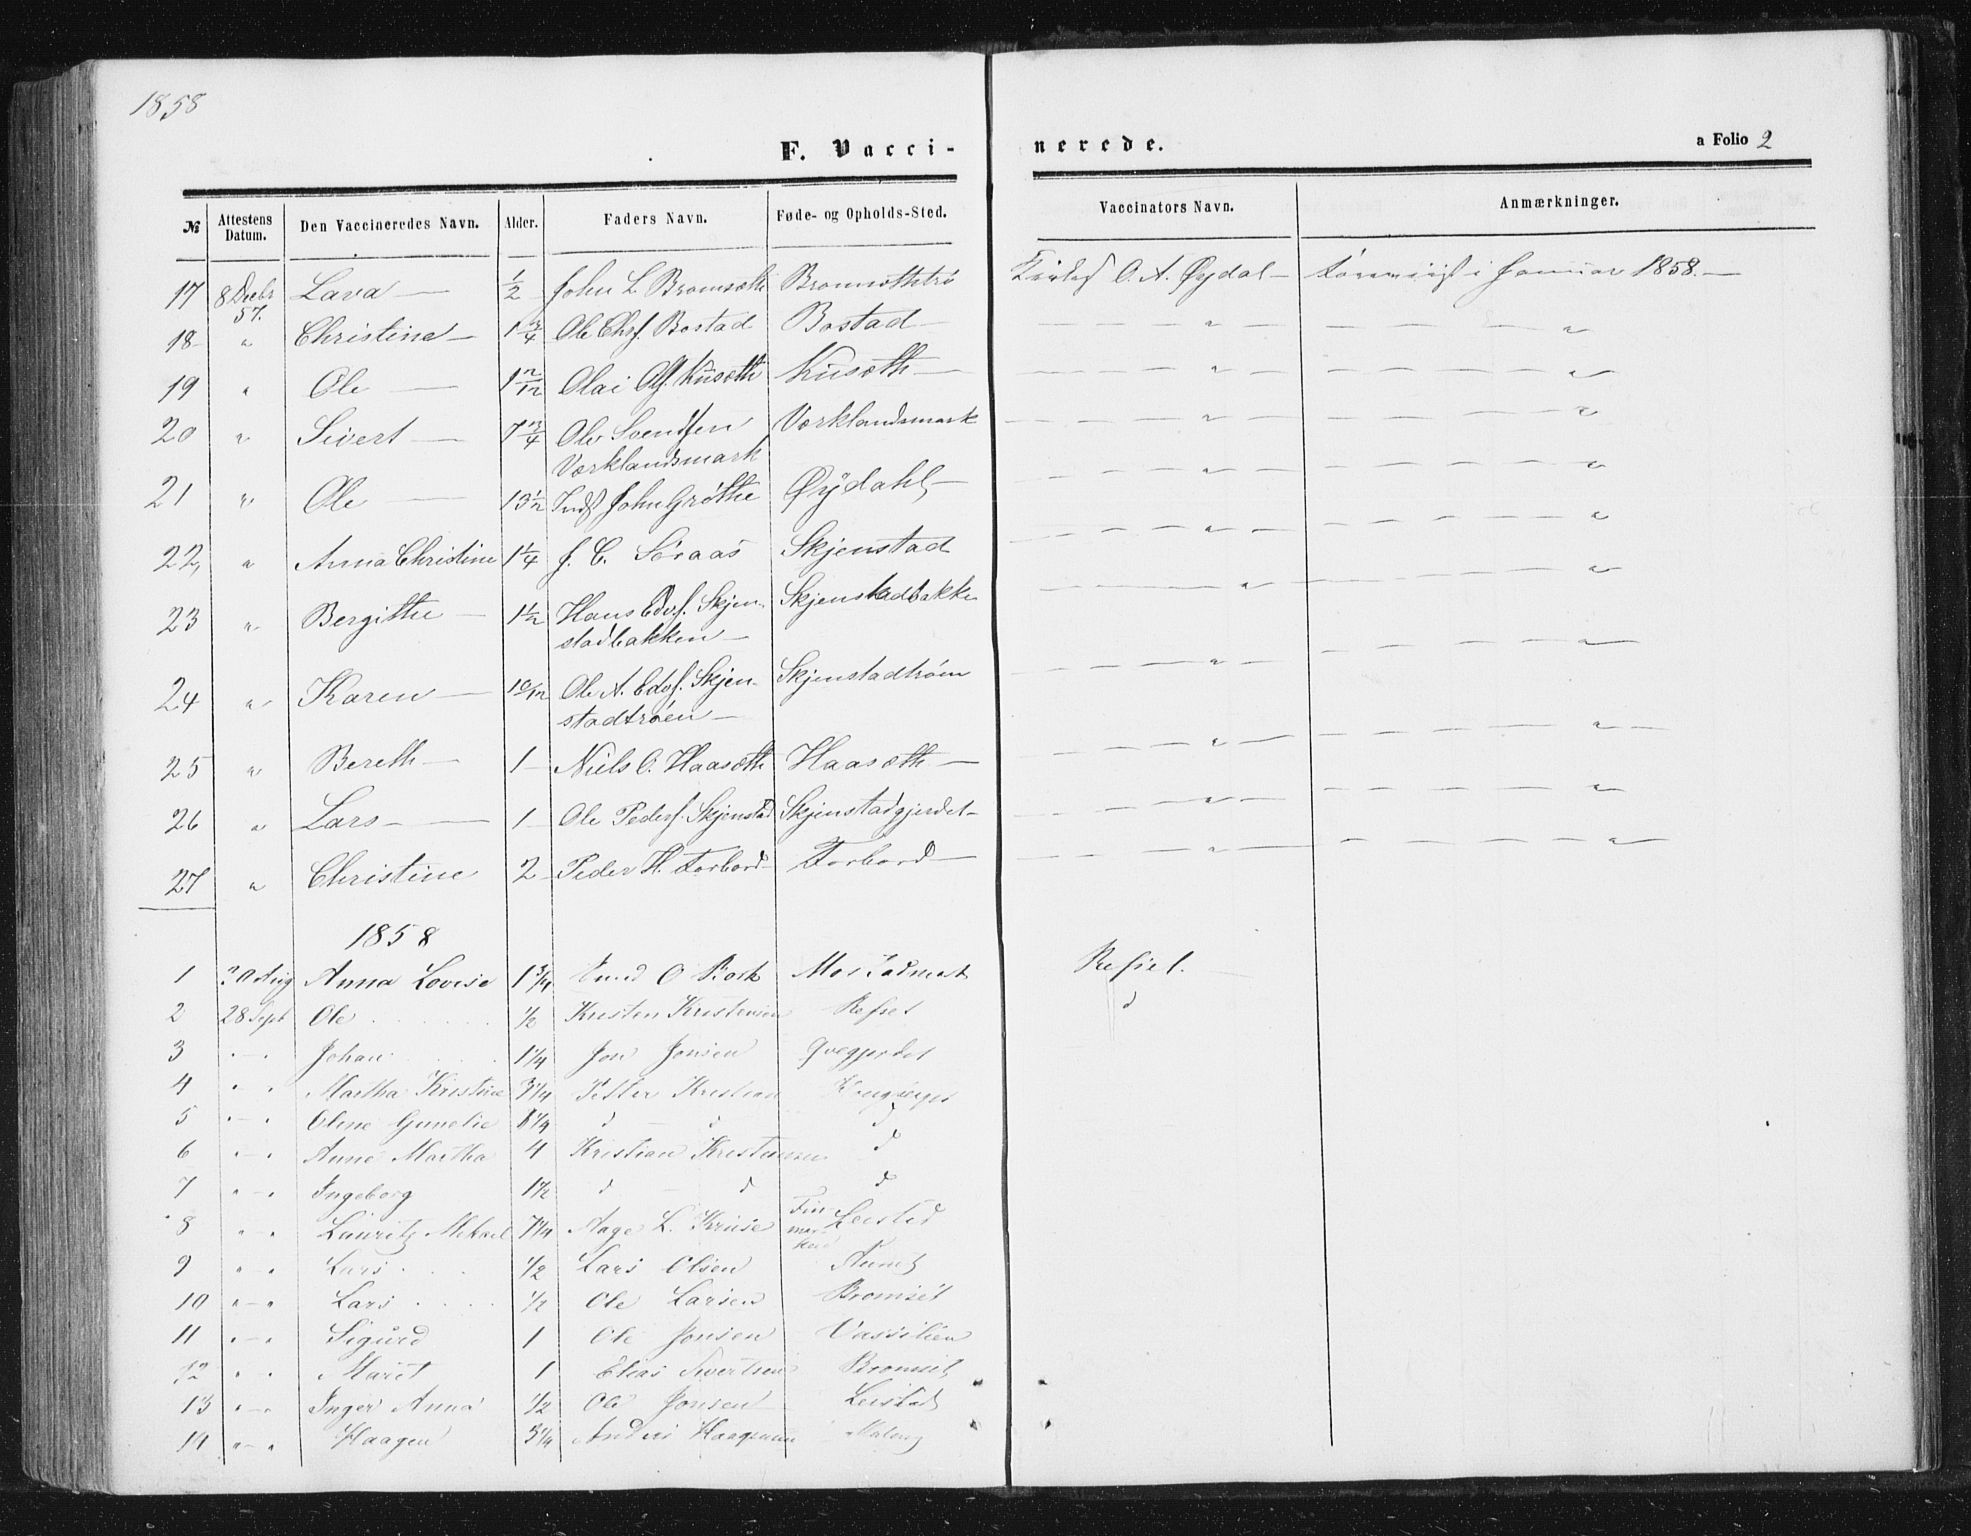 1858
F. Vacci- nerede. a Folio 2
№ Attestens Datum. Den Vaccineredes Navn. Alder. Faders Navn. Føde- og Opholds-Sted. Vaccinators Navn. Anmærkninger.
17 8 Decbr 57. Lava — 1/2 John L Bromsøth O. A. Øydal — i Januar 1858. —
18 " Christine — 1 3/4 Ole Bostad Bostad — " "
19 " Ole — Olai Kusøth Kusøth — " "
20 " Sivert — 7 3/4 Ole Svendsen Vorklandsmark " "
Vorklandsmark
21 " Ole — 13 1/2 John Grøthe Øydahl — " "
22, " Anna Christine 1 1/4 J. C. Soraas Skjenstad " "
23 " Bergitthe — 1 1/2 Hans Edvs. Skjen- Skjenstadbakke " "
stadbakken —
24 " Karen — 10/12 Ole A. Edvs. Skjen- Skjenstadtrøen " "
stadtrøen —
25 " Bereth — 1 — Niels O. Haasøth Haasøth — " "
26 " Lars — 1 — Ole Peders. Skjenstad Skjenstadgjerdet — " "
27 " Christine 2 — Peder H. Forbord Forbord — " "
1858
1 Aug Anna Lovise 1 3/4 O Refset.
2 28 Sept Ole 1/2 Kristen Kristensen Refset d
3 " - " Johan 1 1/4 Jon Jonsen
4 " - " Martha Kristine 3 1/4 Petter Kristian
5 " - " Oline Gunelie 8 1/4 d — d d
6 " - " Anne Martha 4 Kristian Kristensen d
7 " - " Ingeborg 1 1/2 d — d d
8 " - " Lauritz Mikael 7 1/4 Aage L. Kruse Leistad
9 " - " Lars 1/2 Lars Olsen
10 " - " Lars 1/2 Ole Larsen Bromset
11 " - " Sigurd 1 Ole Jonsen Vasslien
12 " " Marit 1 Elias Sivertsen Bromset
13 " - " Inger Anna 1/2 Ole Jonsen Leistad
14 " - " Haagen 3 1/4 Anders